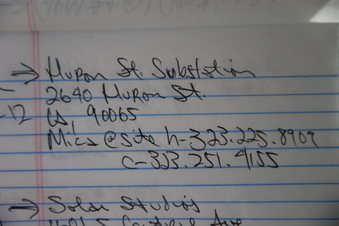 → Huron St. Substation
2640 Huron St.
LA. 90065
Mike @ site h-323.225.8909
c-323.251.4155
→ Solar Studios